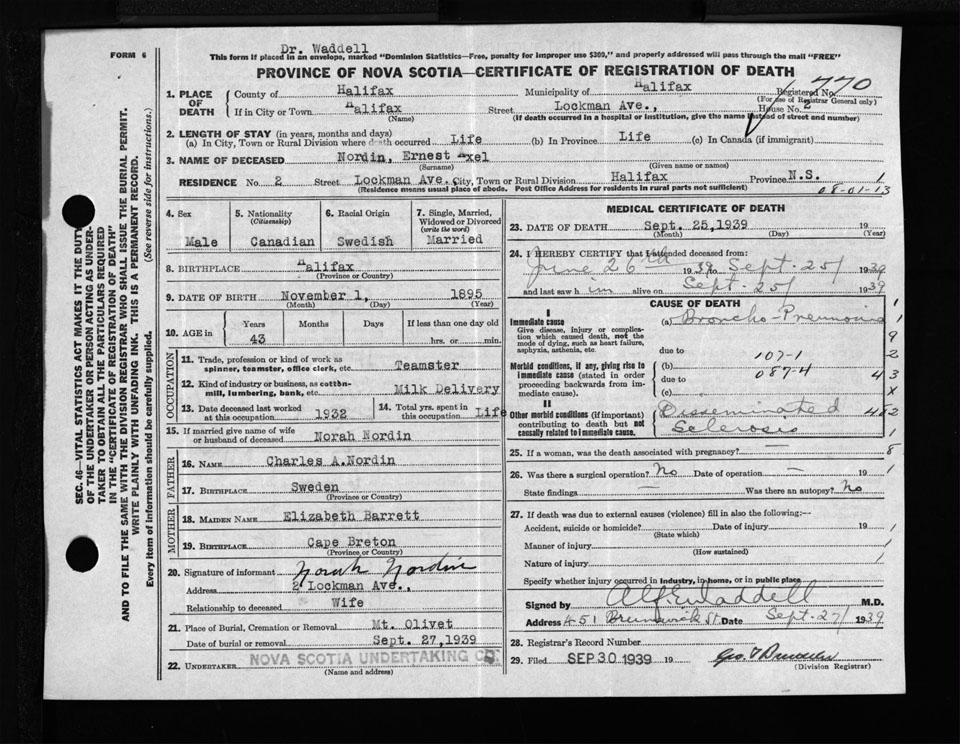 Dr. Waddell
FORM 6
This form if placed in an envelope, marked "Dominion Statistics—Free, penalty for improper use $300," and properly addressed will pass through the mail "FREE"
PROVINCE OF NOVA SCOTIA—CERTIFICATE OF REGISTRATION OF DEATH
770
1. PLACE OF DEATH
County of Halifax Municipality of Halifax Registered No.
(For use of Registrar General only)
If in City or Town Halifax Street Lockman Ave., House No. 2
(Name) (If death occurred in a hospital or institution, give the name instead of street and number)
2. LENGTH OF STAY (in years, months and days)
(a) In City, Town or Rural Division where death occurred Life (b) In Province Life (c) In Canada (if immigrant)
3. NAME OF DECEASED Nordin, Ernest Axel
(Surname) (Given name or names)
RESIDENCE No. 2 Street Lockman Ave., City, Town or Rural Division Halifax Province N.S. 1
(Residence means usual place of abode. Post Office Address for residents in rural parts not sufficient)
08-01-13
4. Sex
Male
5. Nationality
(Citizenship)
Canadian
6. Racial Origin
Swedish
7. Single, Married, Widowed or Divorced
(write the word)
Married
8. BIRTHPLACE Halifax
(Province or Country)
9. DATE OF BIRTH November 1, 1895
(Month) (Day) (Year)
10. AGE in
Years Months Days If less than one day old
43 hrs. or min.
OCCUPATION
11. Trade, profession or kind of work as spinner, teamster, office clerk, etc. Teamster
12. Kind of industry or business, as cotton-mill, lumbering, bank, etc. Milk Delivery
13. Date deceased last worked at this occupation 1932
14. Total yrs. spent in this occupation Life
15. If married give name of wife or husband of deceased Norah Nordin
FATHER
16. NAME Charles A.Nordin
17. BIRTHPLACE Sweden
(Province or Country)
MOTHER
18. MAIDEN NAME Elizabeth Barrett
19. BIRTHPLACE Cape Breton
(Province or Country)
20. Signature of informant Norah Nordin
Address 2 Lockman Ave.,
Relationship to deceased Wife
21. Place of Burial, Cremation or Removal Mt. Olivet
Date of burial or removal Sept. 27,1939
22. UNDERTAKER NOVA SCOTIA UNDERTAKING CO.
(Name and address)
MEDICAL CERTIFICATE OF DEATH
23. DATE OF DEATH Sept. 25,1939
(Month) (Day) (Year)
24. I HEREBY CERTIFY that I attended deceased from:
June 26 1939 to Sept. 25/ 1939
and last saw him alive on Sept. 25/ 1939
CAUSE OF DEATH
I
Immediate cause
Give disease, injury or complication which caused death, not the mode of dying, such as heart failure, asphyxia, asthenia, etc.
(a) Broncho-Pneumonia
due to
Morbid conditions, if any, giving rise to immediate cause (stated in order proceeding backwards from immediate cause).
(b) 107-1
due to 087-4
(c)
II
Other morbid conditions (if important) contributing to death but not causally related to immediate cause.
Disseminated
Sclerosis
1
9
2
43
X
1
8
25. If a woman, was the death associated with pregnancy?
26. Was there a surgical operation? No Date of operation — 19 1
State findings — Was there an autopsy? No
27. If death was due to external causes (violence) fill in also the following:—
Accident, suicide or homicide? Date of injury 19 1
(State which)
Manner of injury 1
(How sustained)
Nature of injury 1
Specify whether injury occurred in industry, in home, or in public place
Signed by Alf E Waddell M.D.
Address 451 Brunswick St. Date Sept-27/ 1939
28. Registrar's Record Number
29. Filed SEP 30 1939 19
(Division Registrar)
SEC. 46—VITAL STATISTICS ACT MAKES IT THE DUTY
OF THE UNDERTAKER OR PERSON ACTING AS UNDER-
TAKER TO OBTAIN ALL THE PARTICULARS REQUIRED
IN THE "CERTIFICATE OF REGISTRATION OF DEATH"
AND TO FILE THE SAME WITH THE DIVISION REGISTRAR WHO SHALL ISSUE THE BURIAL PERMIT.
WRITE PLAINLY WITH UNFADING INK. THIS IS A PERMANENT RECORD.
Every item of information should be carefully supplied. (See reverse side for instructions.)